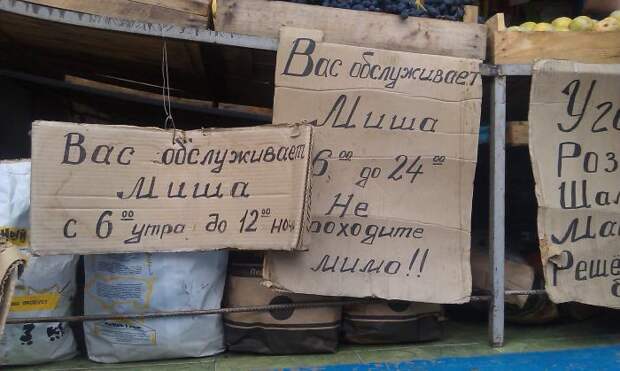 Вас обслуживает
Миша
с 6⁰⁰ утра до 12⁰⁰ но
Вас обслуживает
Миша
6⁰⁰ до 24⁰⁰
Не
роходите
мимо!!
Уг
Роз
Шал
Ма
Реше